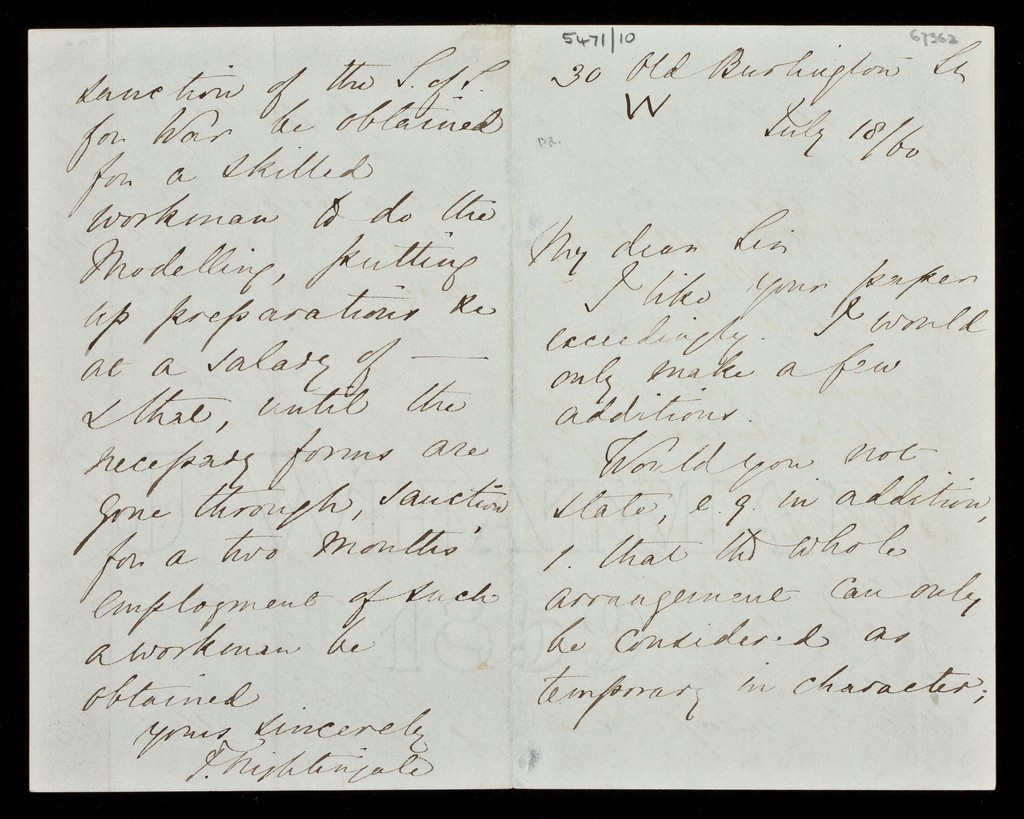 5471/10
67362
30 Old Burlington St
W
July 18/60
My dear Sir
I like your paper
exceedingly. I would
only make a few
additions.
Would you not
state, e.g. in addition,
1. that the whole
arrangement can only
be considered as
temporary in character;
sanction of the S. of S.
for War be obtained
for a skilled
workman to do the
Modelling, putting
up preparations &c
at a salary of ——
& that, until the
necessary forms are
gone through, sanction
for a two months'
employment of such
a workman be
obtained
yours sincerely
F. Nightingale